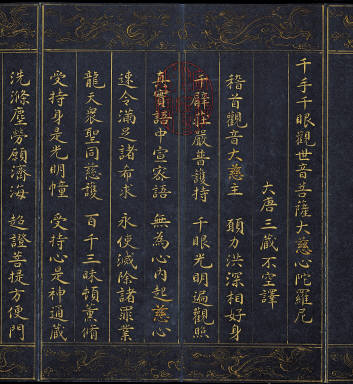 千手千眼觀世音菩薩大慈心陀羅尼
大唐三蔵不空譯
稽首觀音大慈主 願力洪深相好身
千臂莊嚴普護持 千眼光明遍觀照
真實語中宣宻語 無為心內起慈心
速令滿足諸布求 永使滅除諸罪業
龍天衆聖同慈護 百千三昧頓薫脩
受持身是光明幢 受持心是神通蔵
洗滌塵勞願濟海 超證菩提方便門